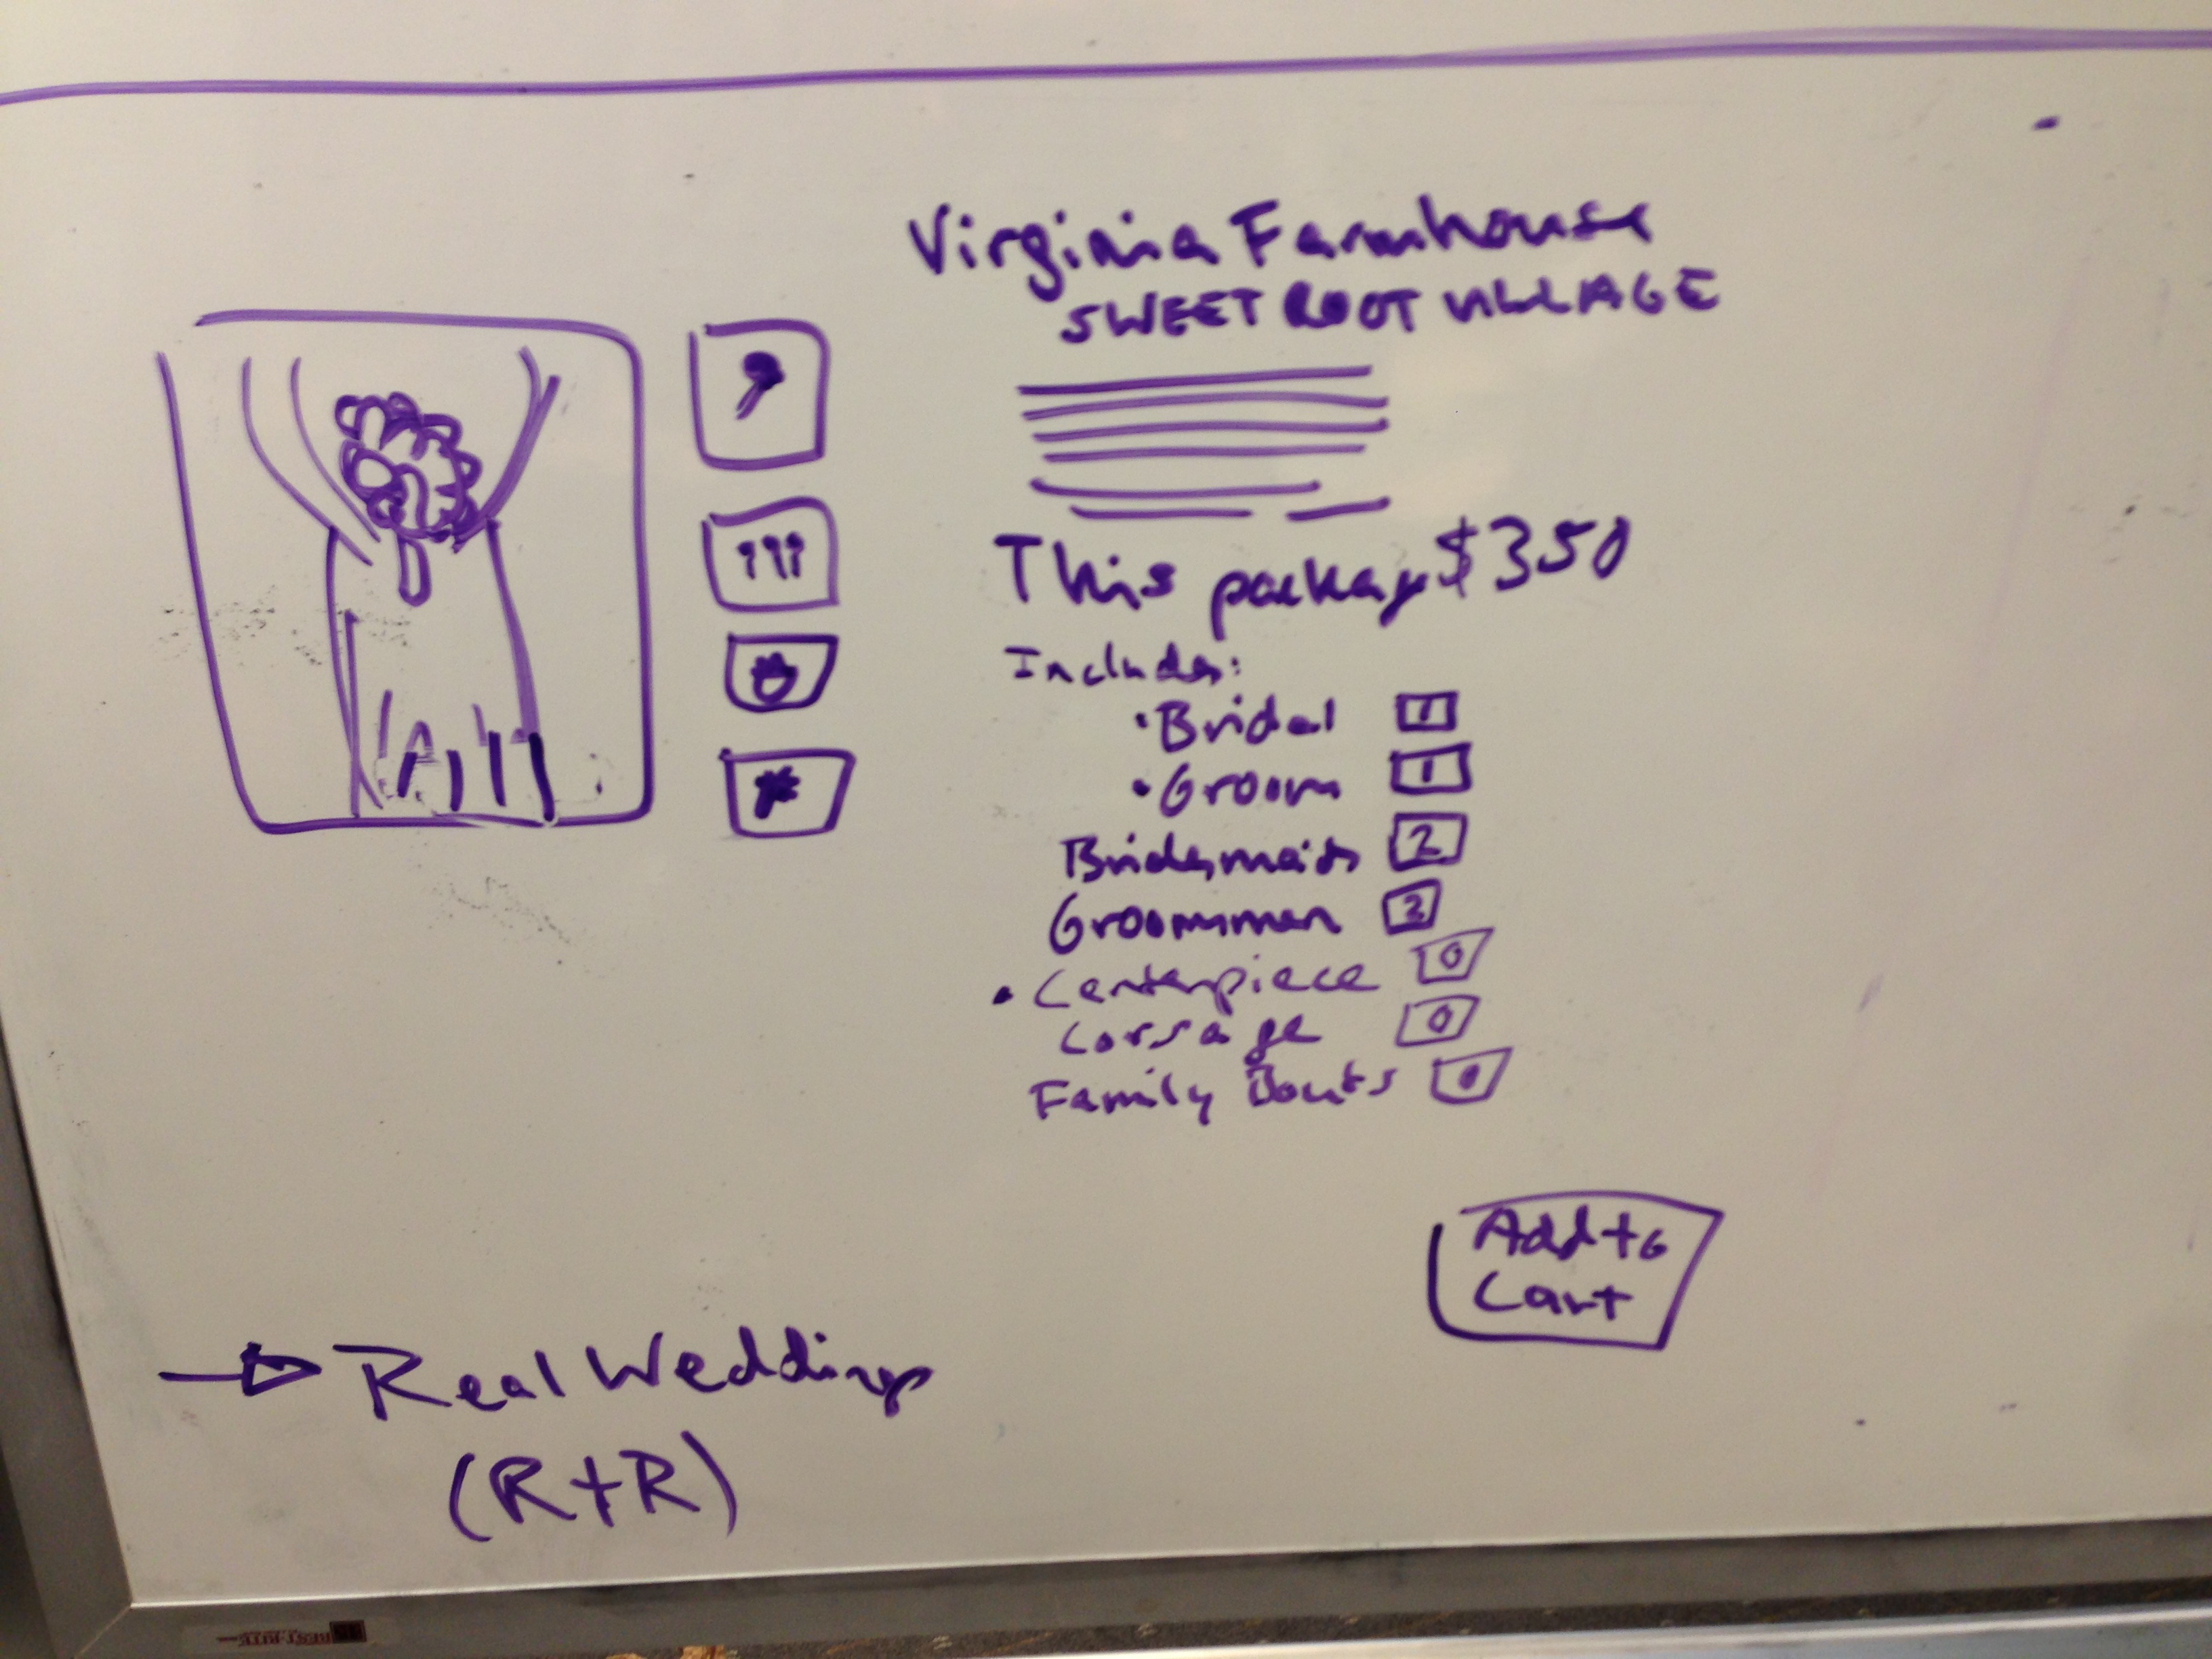 Virginia Farmhouse
SWEET ROOT VILLAGE
This package $350
Includes:
• Bridal 1
• Groom 1
Bridesmaids 2
Groomsmen 2
• Centerpiece 0
Corsage 0
Family Bouts 0
Add to
Cart
Real Weddings
(R+R)